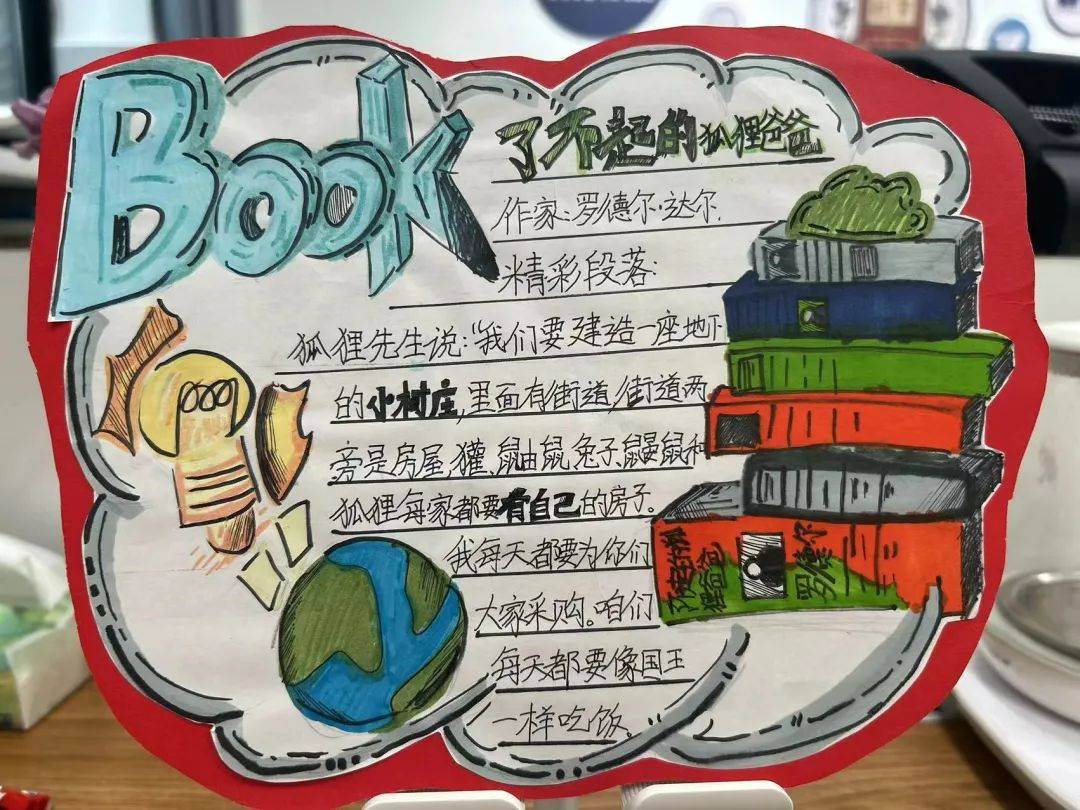 Book
了不起的狐狸爸爸
作家:罗德尔·达尔.
精彩段落:
狐狸先生说:“我们要建造一座地下
的小村庄,里面有街道,街道两
旁是房屋,獾、鼬鼠、兔子、鼹鼠和
狐狸每家都要有自己的房子。
我每天都要为你们
大家采购。咱们
每天都要像国王
一样吃饭。
罗德尔